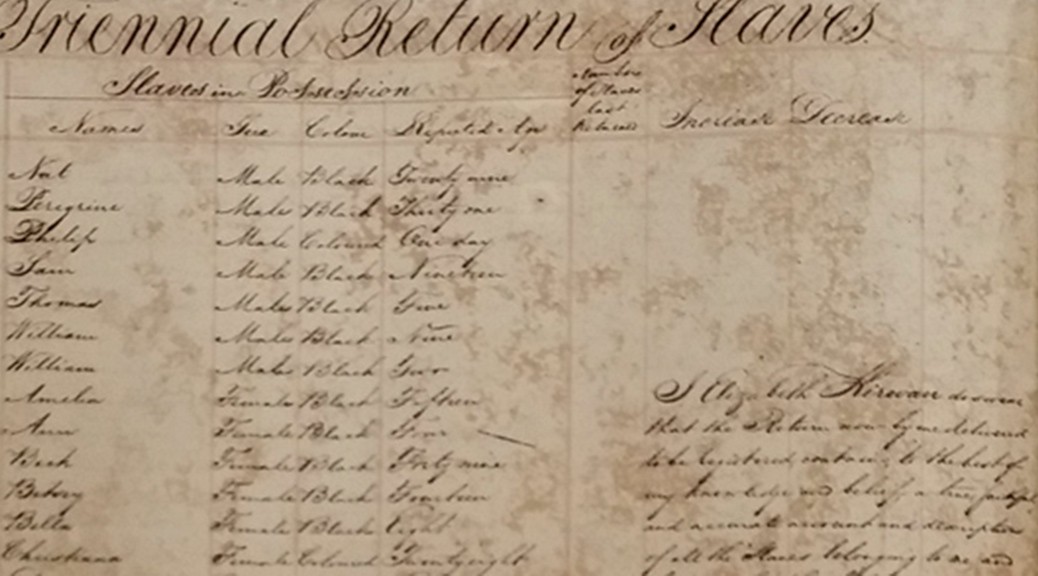 Triennial Return of Slaves
Slaves in Possession
Number
of Slaves
last
Returned
Names Sex Colour Reputed Age Increase Decrease
Nat Male Black Twenty nine
Peregrine Male Black Thirty one
Philip Male Coloured One day
Sam Male Black Nineteen
Thomas Male Black Five
William Male Black Nine
William Male Black Two
Amelia Female Black Fifteen
Ann Female Black Four
Beck Female Black Forty nine
Betsey Female Black Fourteen
Bella Female Black Eight
Christiana Female Coloured Twenty eight
I Elizabeth Kirwan do swear
that the Return now by me delivered
to be registered, contains, to the best of
my knowledge and belief, a true, faithful
and accurate account and description
of all the Slaves belonging to me and